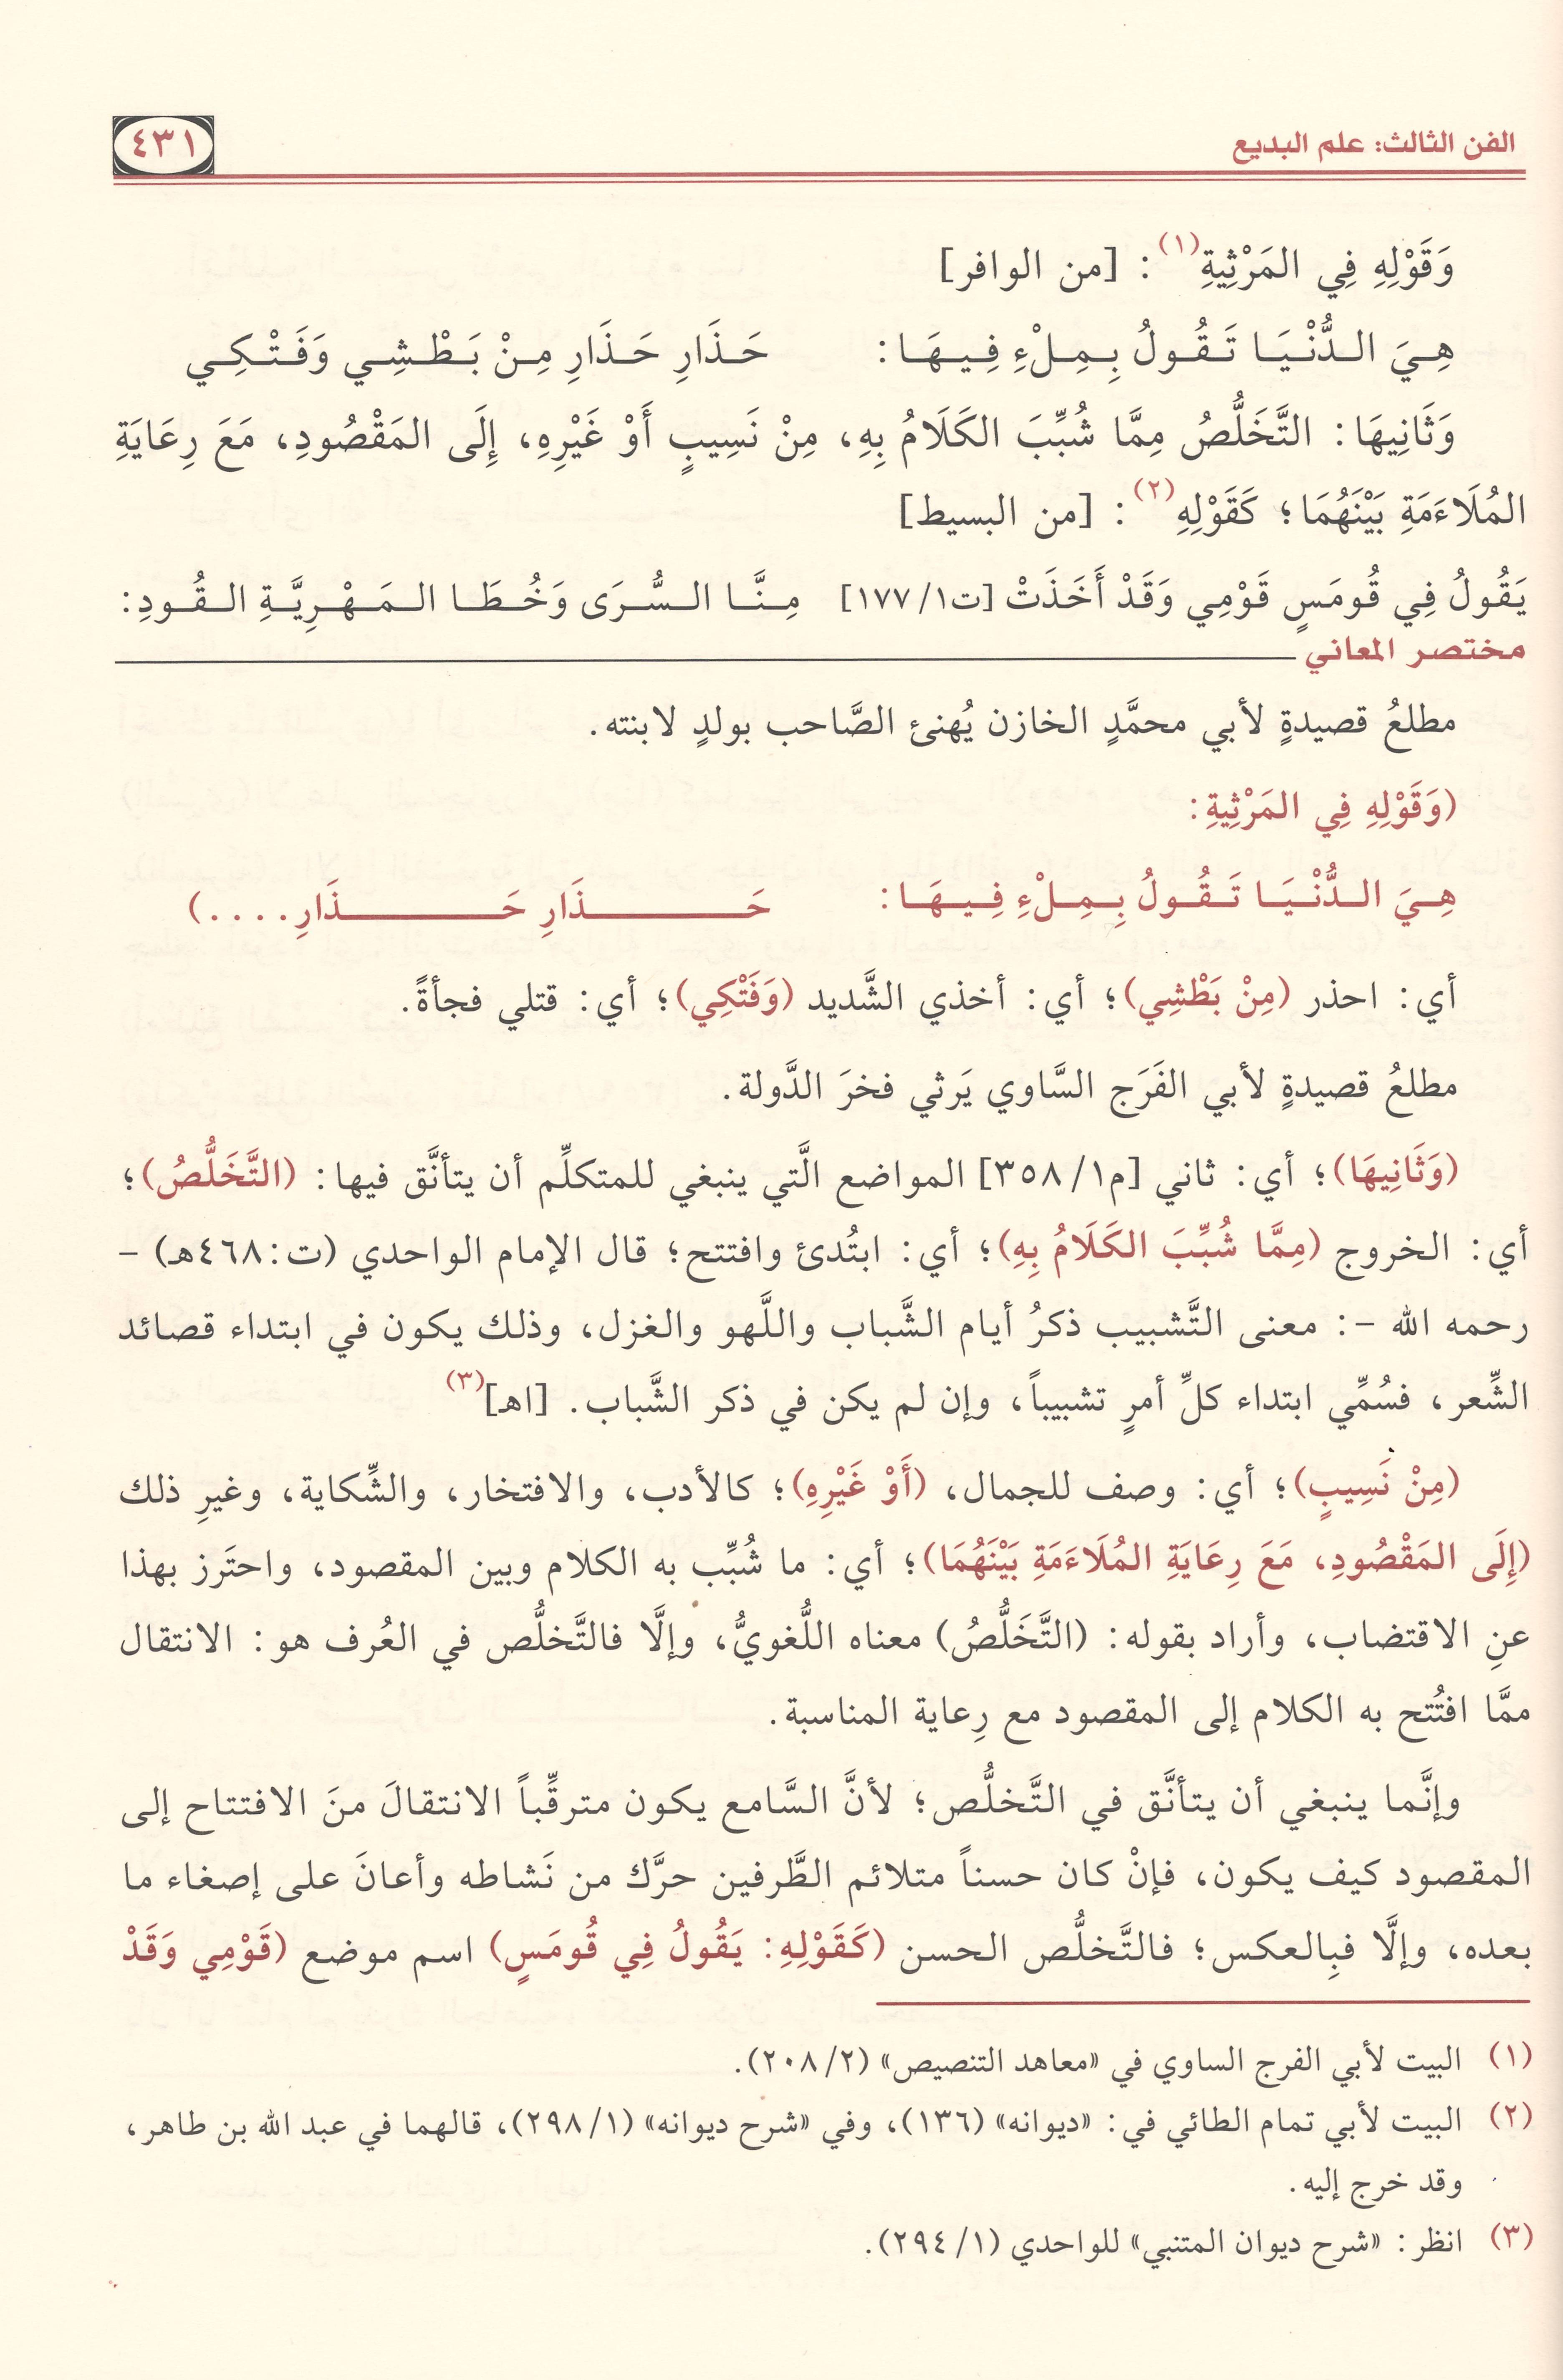 الفن الثالث: علم البديع ٤٣١
وَقَوْلِهِ فِي المَرْثِيةِ(١): [من الوافر]
هِيَ الدُّنْيَا تَقُولُ بِمِلْءِ فِيهَا: حَذَارِ حَذَارِ مِنْ بَطْشِي وَفَتْكِي
وَثَانِيهَا: التَّخَلُّصُ مِمَّا شُبِّبَ الكَلَامُ بِهِ، مِنْ نَسِيبٍ أَوْ غَيْرِهِ، إِلَى المَقْصُودِ، مَعَ رِعَايَةِ
المُلَاءَمَةِ بَيْنَهُمَا؛ كَقَوْلِهِ(٢): [من البسيط]
يَقُولُ فِي قُومَسٍ قَوْمِي وَقَدْ أَخَذَتْ [ت١/ ١٧٧] مِنَّا السُّرَى وَخُطَا المَهْرِيَّةِ القُودِ:
مختصر المعاني
مطلعُ قصيدةٍ لأبي محمَّدٍ الخازن يُهنئ الصَّاحب بولدٍ لابنته.
(وَقَوْلِهِ فِي المَرْثِيةِ:
هِيَ الدُّنْيَا تَقُولُ بِمِلْءِ فِيهَا: حَذَارِ حَذَارِ....)
أي: احذر (مِنْ بَطْشِي)؛ أي: أخذي الشَّديد (وَفَتْكِي)؛ أي: قتلي فجأةً.
مطلعُ قصيدةٍ لأبي الفَرَج السَّاوي يَرثي فخرَ الدَّولة.
(وَثَانِيهَا)؛ أي: ثاني [م١/ ٣٥٨] المواضع الَّتي ينبغي للمتكلِّم أن يتأنَّق فيها: (التَّخَلُّصُ)؛
أي: الخروج (مِمَّا شُبِّبَ الكَلَامُ بِهِ)؛ أي: ابتُدئ وافتتح؛ قال الإمام الواحدي (ت:٤٦٨هـ) -
رحمه الله -: معنى التَّشبيب ذكرُ أيام الشَّباب واللَّهو والغزل، وذلك يكون في ابتداء قصائد
الشِّعر، فسُمِّي ابتداء كلِّ أمرٍ تشبيباً، وإن لم يكن في ذكر الشَّباب. [اهـ](٣)
(مِنْ نَسِيبٍ)؛ أي: وصف للجمال، (أَوْ غَيْرِهِ)؛ كالأدب، والافتخار، والشِّكاية، وغيرِ ذلك
(إِلَى المَقْصُودِ، مَعَ رِعَايَةِ المُلَاءَمَةِ بَيْنَهُمَا)؛ أي: ما شُبِّب به الكلام وبين المقصود، واحتَرز بهذا
عنِ الاقتضاب، وأراد بقوله: (التَّخَلُّصُ) معناه اللُّغويُّ، وإلَّا فالتَّخلُّص في العُرف هو: الانتقال
ممَّا افتُتح به الكلام إلى المقصود مع رِعاية المناسبة.
وإنَّما ينبغي أن يتأنَّق في التَّخلُّص؛ لأنَّ السَّامع يكون مترقِّباً الانتقالَ منَ الافتتاح إلى
المقصود كيف يكون، فإنْ كان حسناً متلائم الطَّرفين حرَّك من نَشاطه وأعانَ على إصغاء ما
بعده، وإلَّا فبِالعكس؛ فالتَّخلُّص الحسن (كَقَوْلِهِ: يَقُولُ فِي قُومَسٍ) اسم موضع (قَوْمِي وَقَدْ
(١) البيت لأبي الفرج الساوي في «معاهد التنصيص» (٢٠٨/٢).
(٢) البيت لأبي تمام الطائي في: «ديوانه» (١٣٦)، وفي «شرح ديوانه» (٢٩٨/١)، قالهما في عبد الله بن طاهر،
وقد خرج إليه.
(٣) انظر: «شرح ديوان المتنبي» للواحدي (٢٩٤/١).